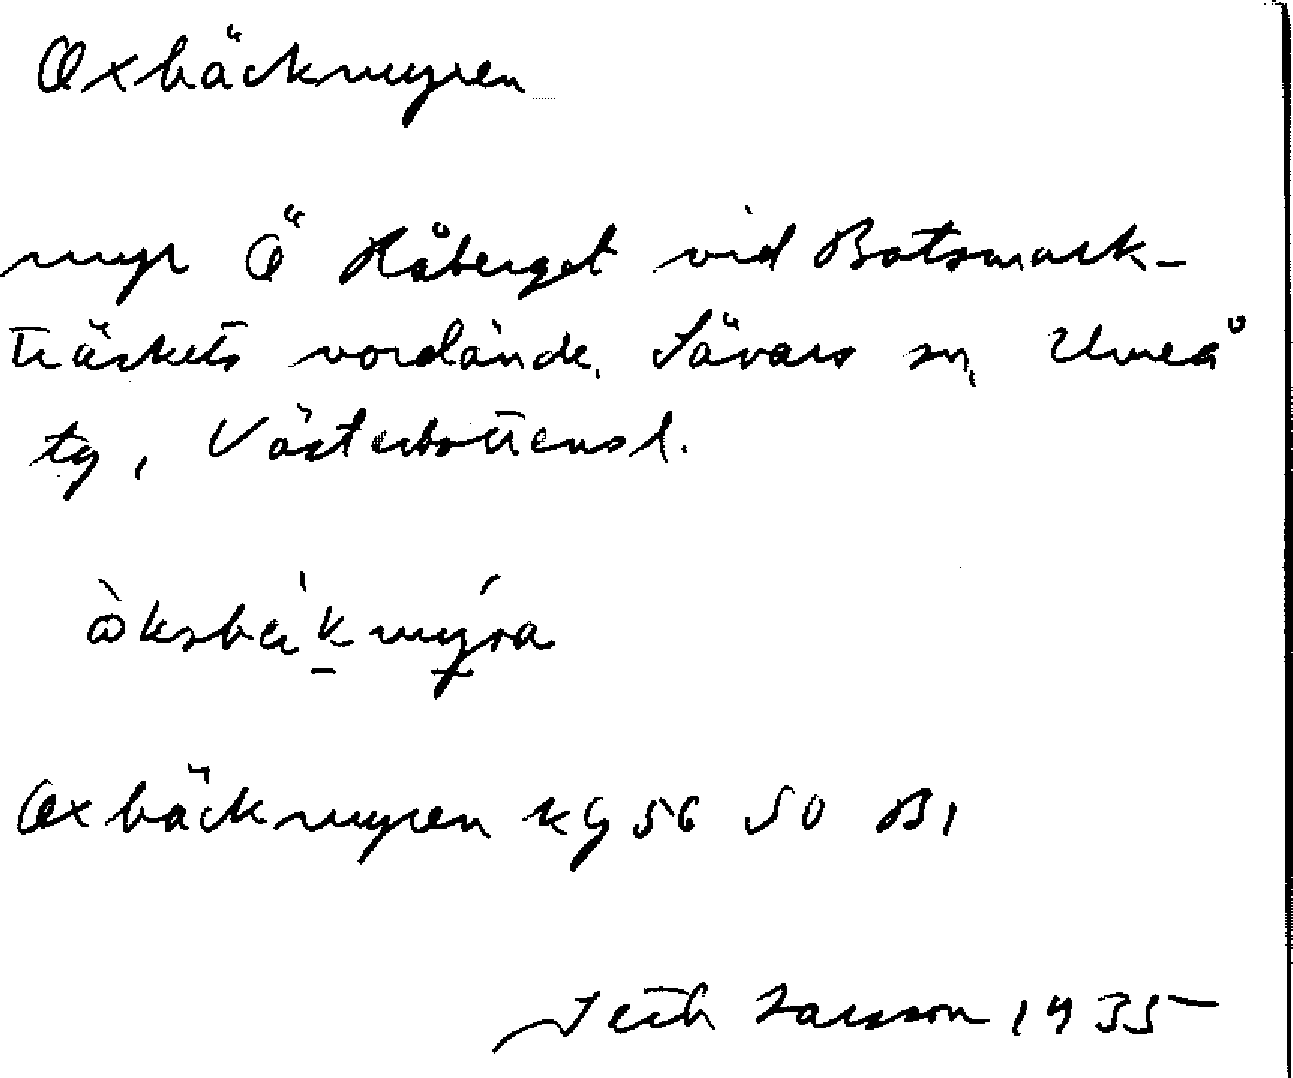 Oxbäckmyren
myr Ö Håberget vid Botsmark-
träskets nordände, Sävars sn, Umeå
tg, Västerbottensl.
òksbäkmýra
Oxbäckmyren kg 56 50 B1
Seth Larsson 1935